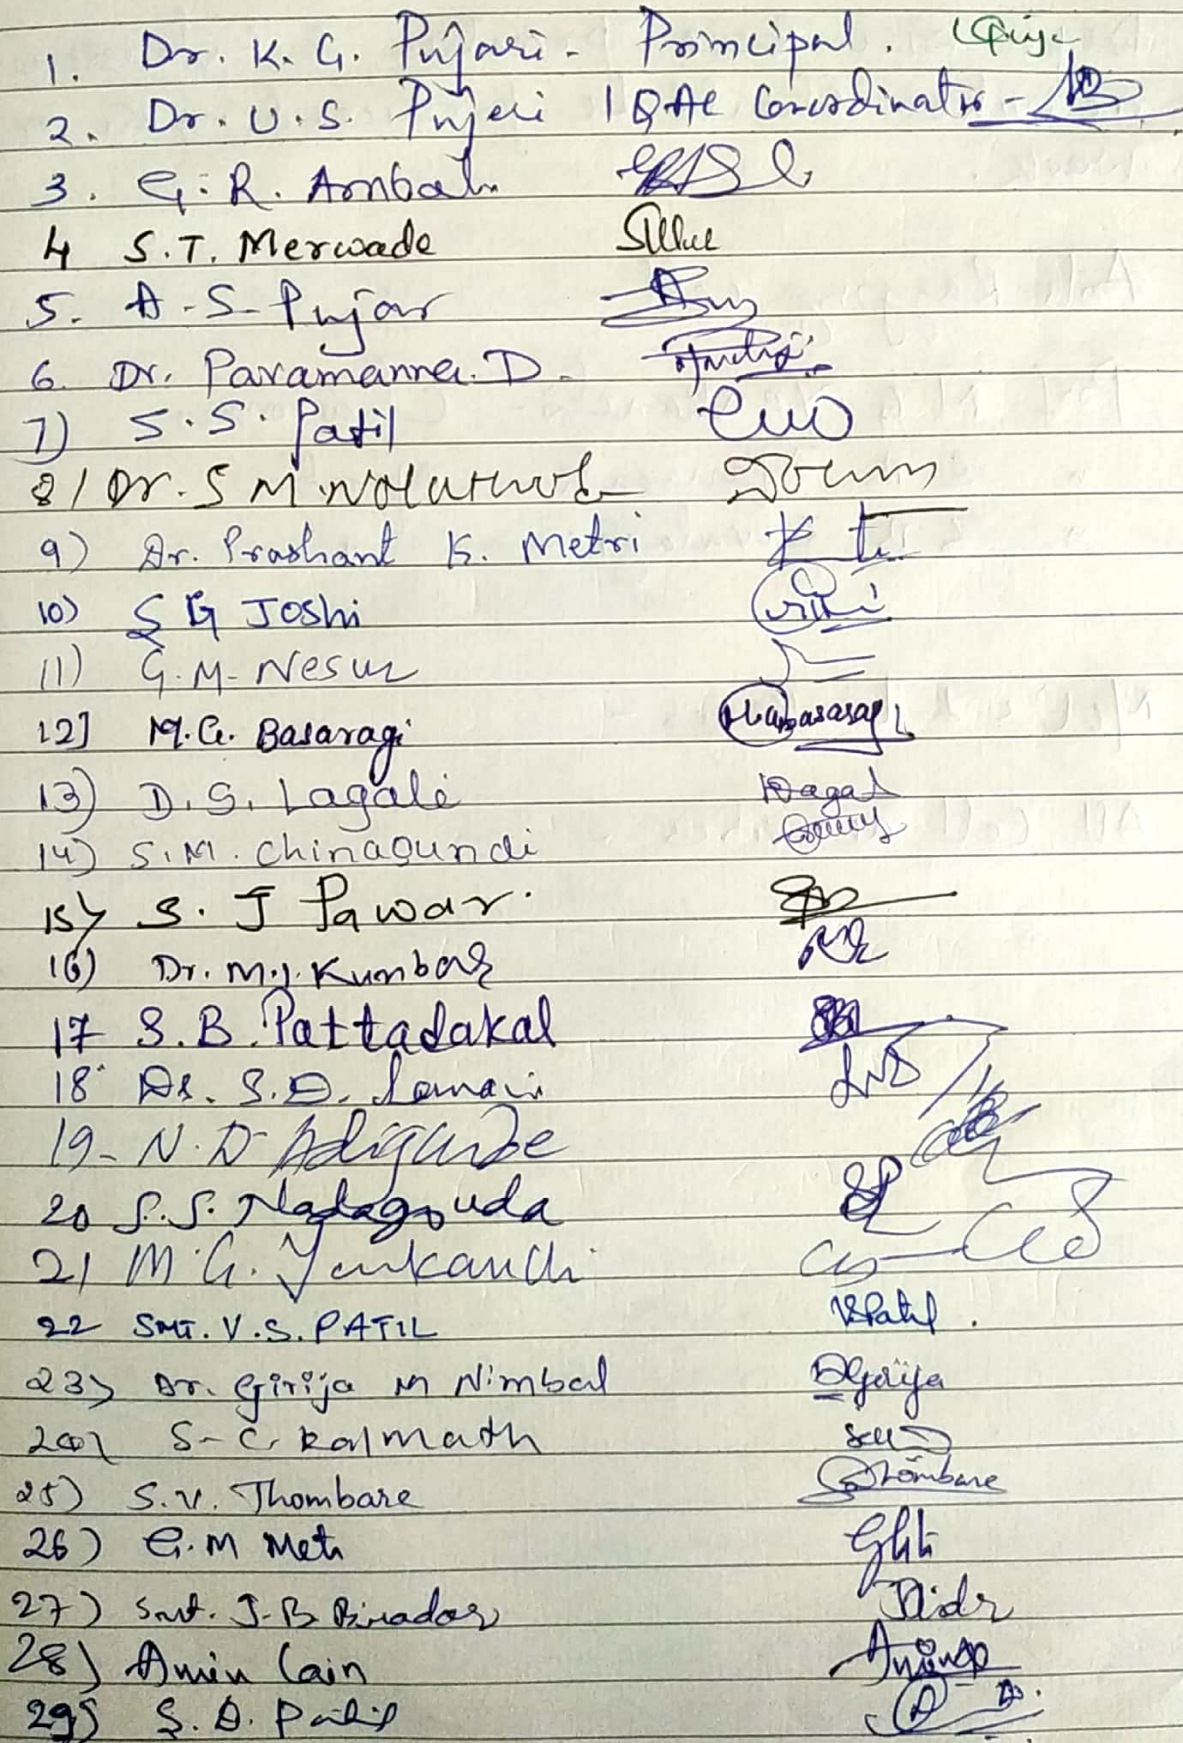 1. Dr. K. G. Pujari - Principal.
2. Dr. U. S. Pujeri IQAC Coordinator -
3. G. R. Ambali
4 S.T. Merwade
5. A. S. Pujar
6. Dr. Paramanna. D.
7) S. S. Patil
8) Dr. S M
9) Dr. Prashant K. Metri
10) S G Joshi
11) G. M. Nesur
12] M. G. Basaragi
13) D. S. Lagali
14) S. M. Chinagundi
15) S. J Pawar.
16) Dr. M. J. Kumbar
17 S. B. Pattadakal
18 Dr. S. D.
19- N. D
20 S. S. Nadagouda
21 M. G. Yenkanchi
22 SMT. V. S. PATIL VSPatil.
23) Dr. Girija M Nimbal
24) S - C. Kalmath
25) S. V. Thombare Thombare
26) G. M Meti
27) Smt. J. B Biradar
28) Amin Cain
29) S. D. Patil